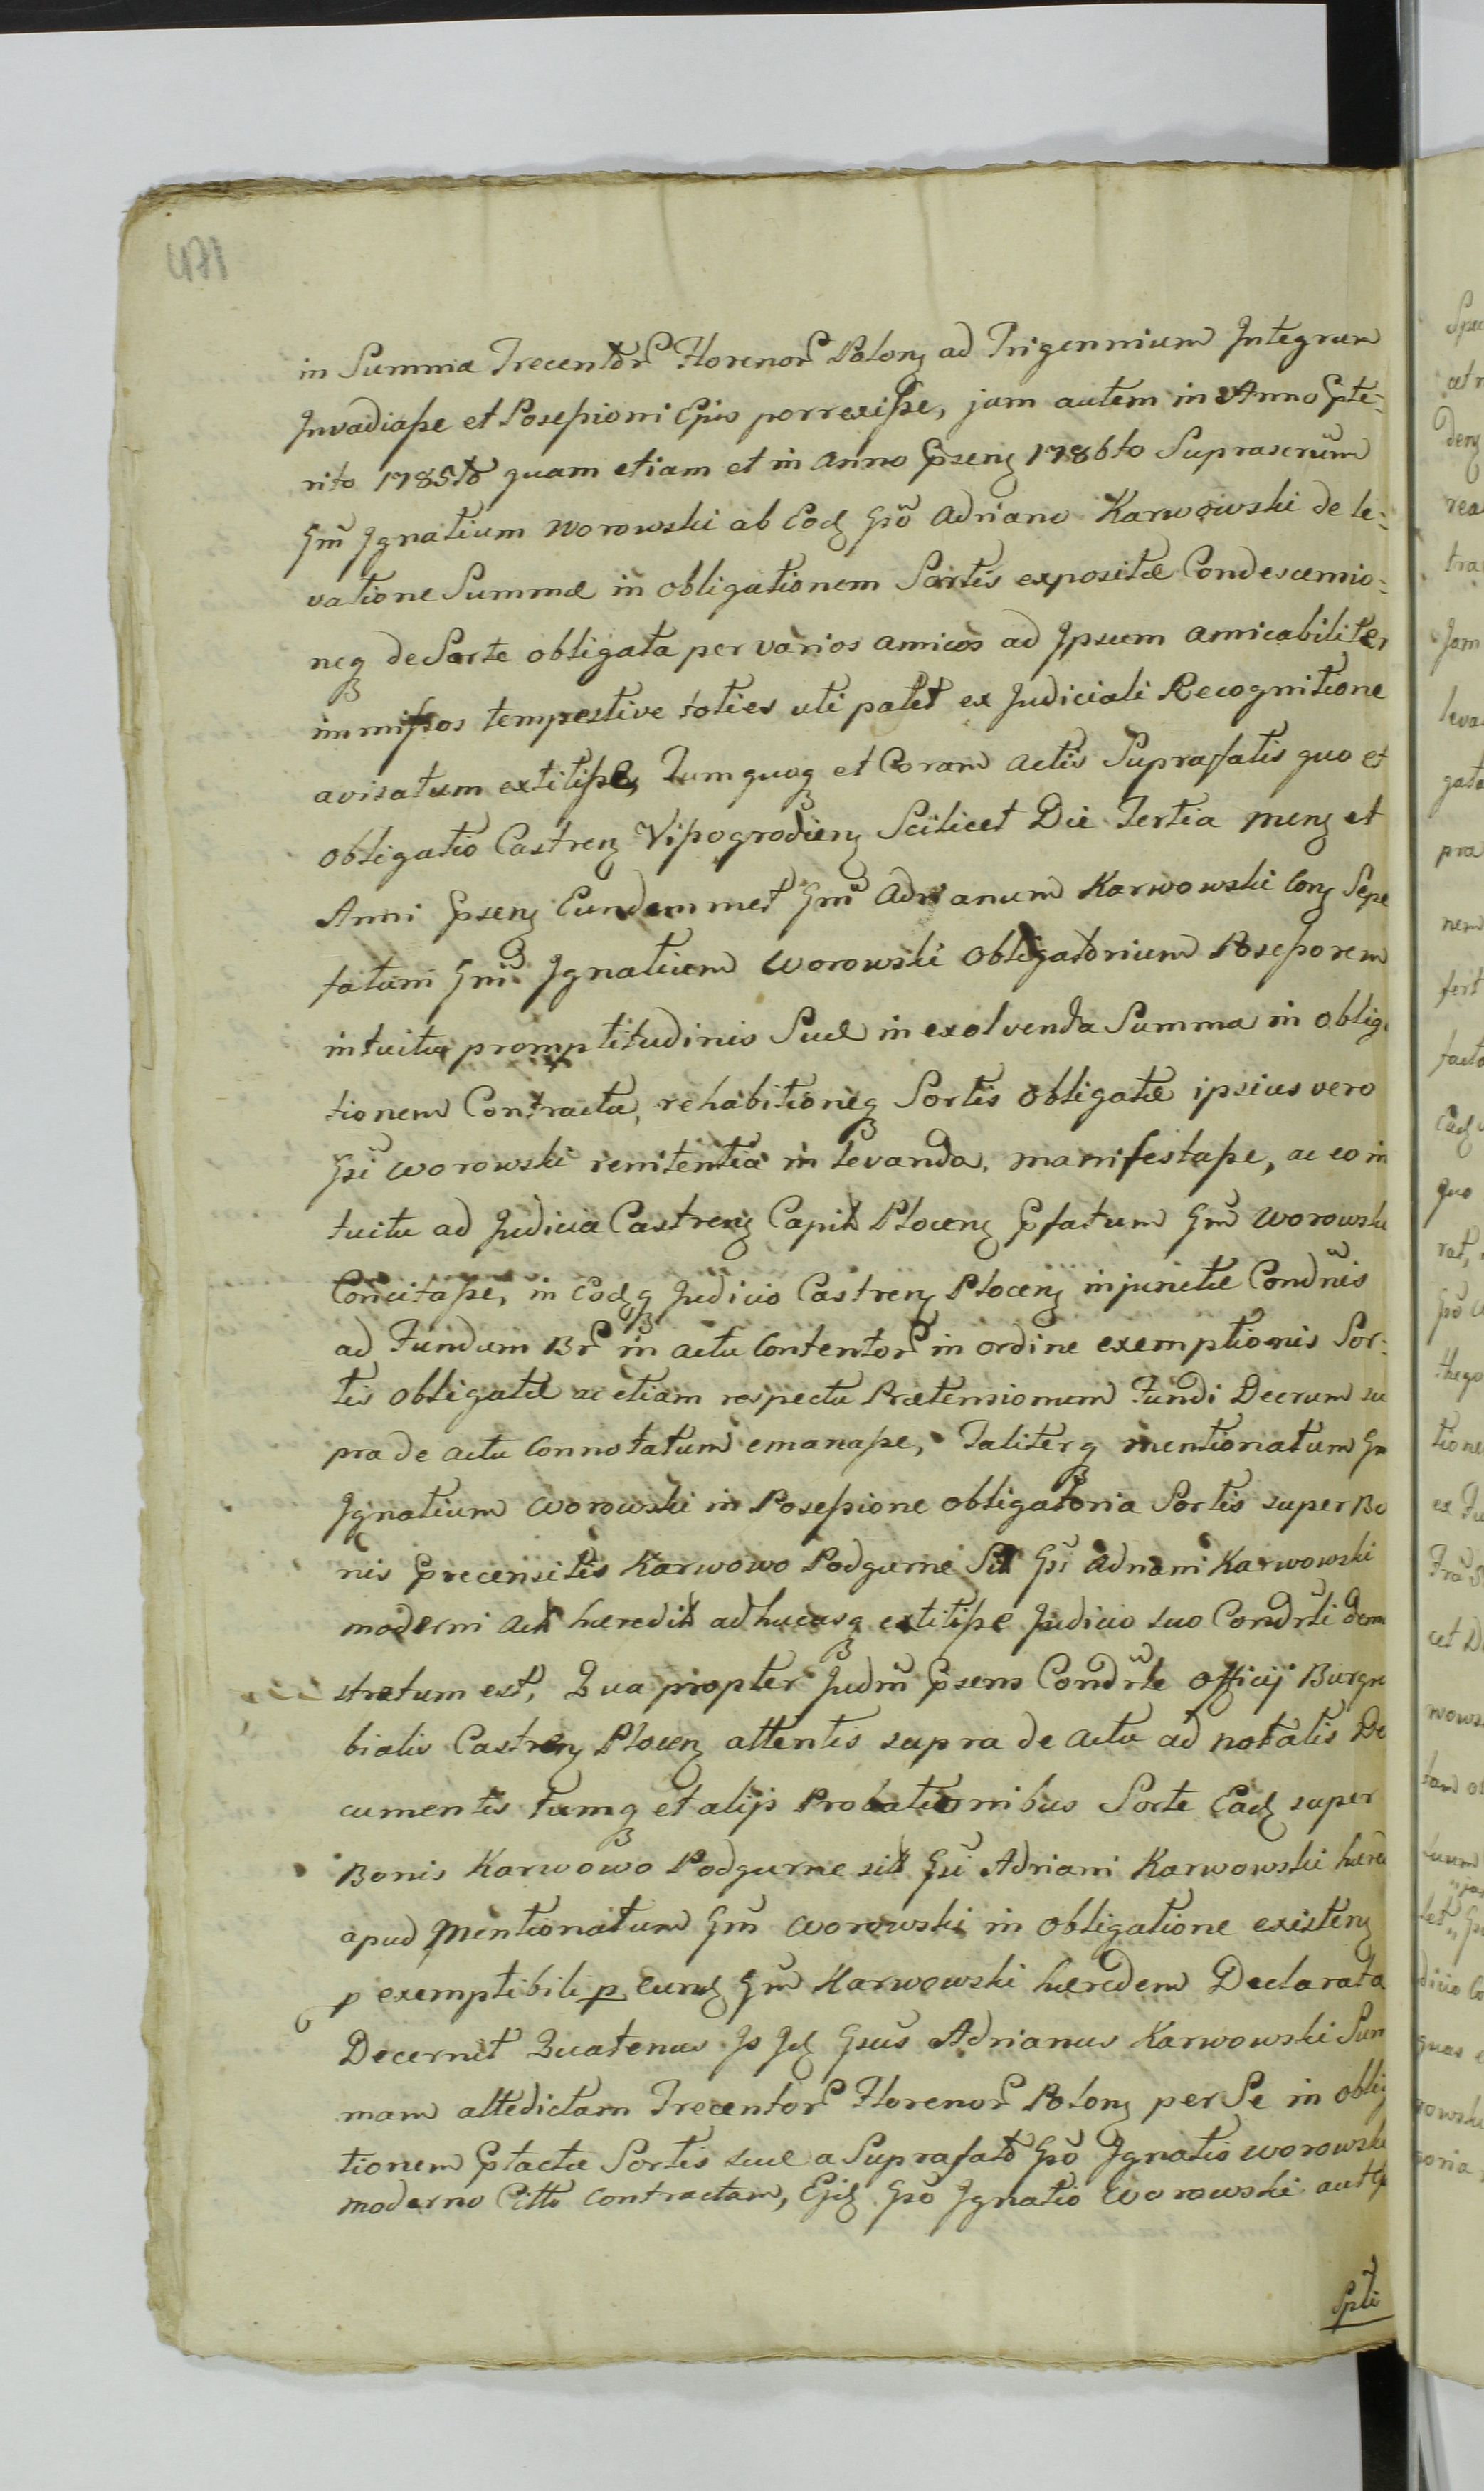 471
in Summa Trecentor Florenor Polonz ad Trigennium Integrum
Invadiasse et Possessioni Ejus porrexisse, jam autem in Anno Prte=
rito 1785to quam etiam et in Anno Prsenz 1786to Suprascrum
Gm Ignatium Worowski ab Eodz Gso Adriano Karwowski de le=
vatione Summæ in obligationem Sortis expositæ Condescensio=
neq de Sorte obligata per varios amicos ad Ipsum amicabiliter
immissos tempestive toties uti patet ex Judiciali Recognitione
avisatum extitisse, Tum quoq et Coram Actis Suprafatis quo et
obligatio Castrenz Vissogrodienz Scilicet Die Tertia menz et
Anni Prsenz Eundemmet Gm Adrianum Karwowski Conz Sepe
fatum Gm Ignatium Worowski Obligatorium Possessorem
intuitu promptitudinis Suæ in exolvenda Summa in oblig
tionem Contracta, rehabitioneq Sortis obligatæ ipsius vero
Gsi Worowski renitentia in levanda, manifestasse, ac eo in
tuitu ad Judicia Castrenz Capit Plocenz Prfatum Gm Worowski
Concitasse, in Eodzq Judicio Castrenz Plocenz injunctæ Condnis
ad Fundum Br in actu Contentor in ordine exemptionis Sor=
tis obligatæ ac etiam respectu Prætensionum Fundi Decrum su
pra de actu Connotatum emanasse, Taliterq mentionatum Gm
Ignatium Worowski in Possessione obligatoria Sortis super Bo
nis Precensitis Karwowo Podgurne Sit Gsi Adriani Karwowski
moderni Act hæredit adhucusq extitisse Judicio suo Condrli demo
stratum est, Quapropter Judm Prsens Condrle Officij Burgra
bialis Castrenz Plocenz attentis supra de actu ad notatis Do
cumentis tumq et alijs Probationibus Sorte Eadz super
Bonis Karwowo Podgurne sit Gsi Adriani Karwowski hæred
apud Mentionatum Gm Worowski in obligatione existenz
p exemptibili p eundz Gm Karwowski hæredem Declarata
Decernit Quatenus Is Idz Gsus Adrianus Karwowski Sum
mam altedictam Trecentor Florenor Polonz per Se in oblig
tionem Prtactæ Sortis suæ a Suprafato Gso Ignatio Worowski
moderno Citto contractam, Ejdz Gso Ignatio Worowski aut
Spti